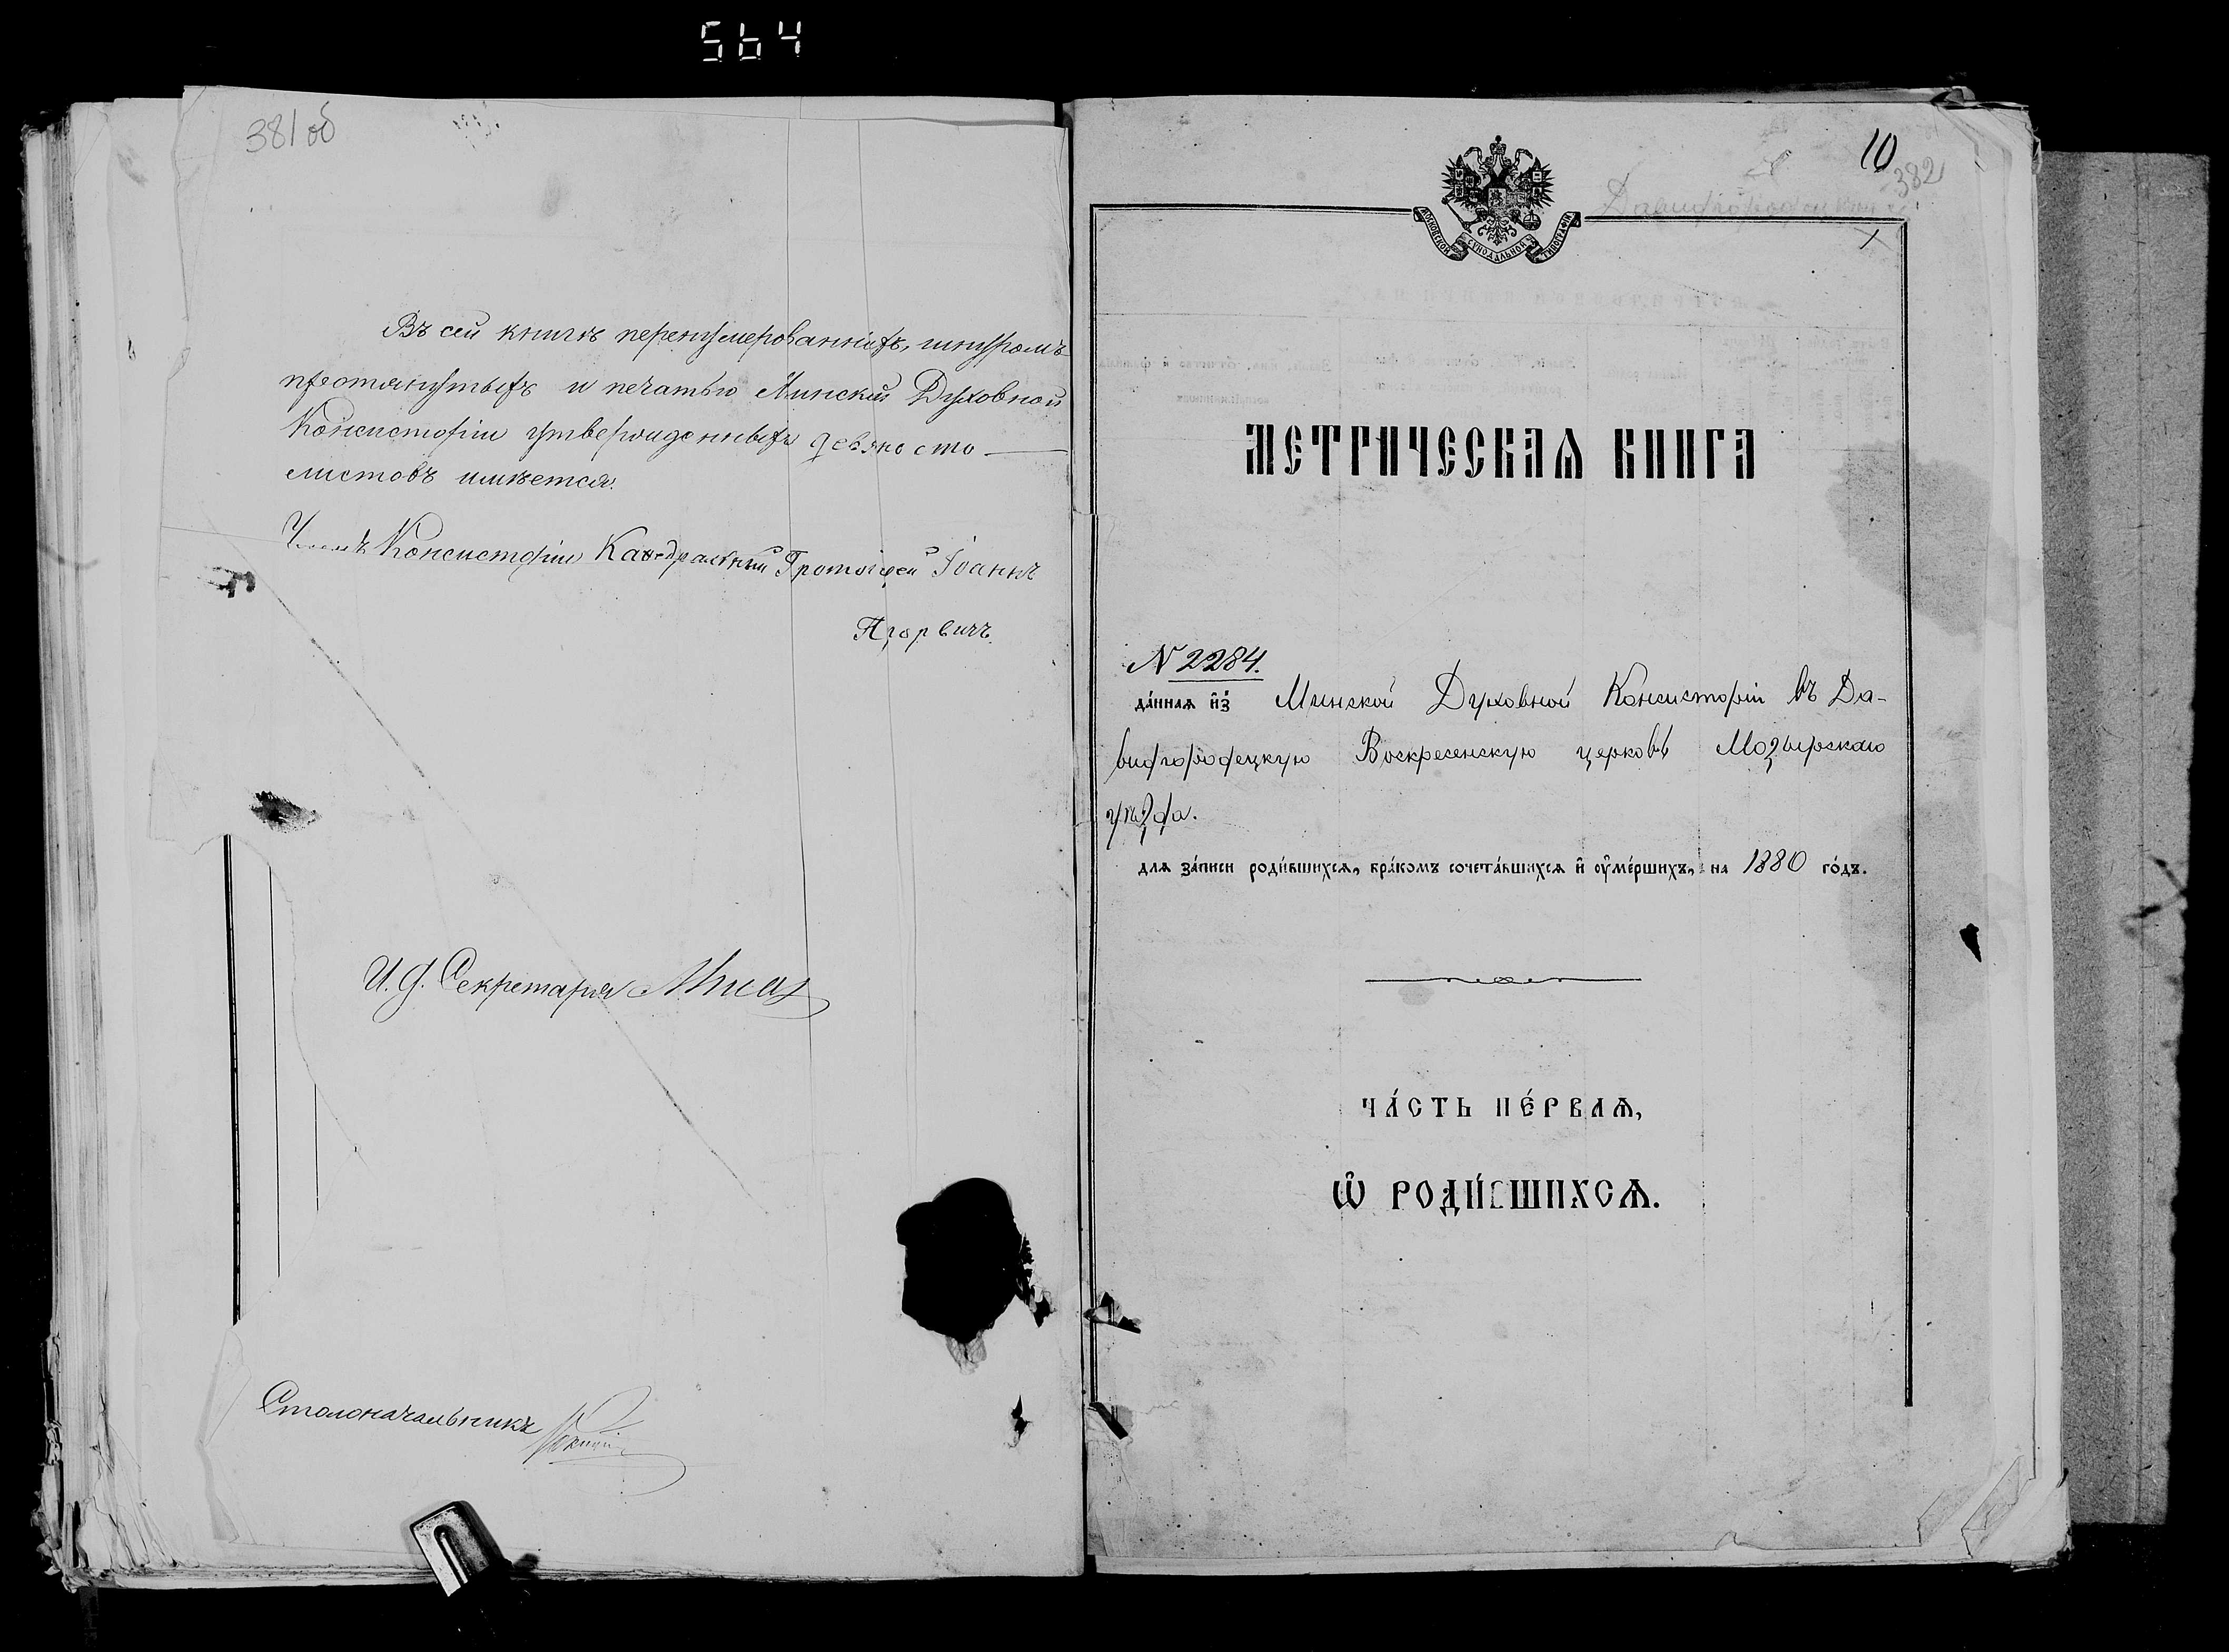 564
381 об
Въ сей книгѣ перенумерованныхъ, шнуромъ
протянутыхъ и печатью Минской Духовной
Консисторіи утвержденныхъ девяносто
листовъ имѣется.
Членъ Консисторіи Каѳедральный Протоіерей Іоаннъ
И. д. Секретаря
Столоначальникъ
10
382
МОСКОВСКОЙ СѴНОДАЛЬНОЙ ТИПОГРАФІИ
1
МЕТРИЧЕСКАѦ КНИГА
N 2284.
да́ннаѧ и҆з̾ Минской Духовной Консисторіи въ Да-
видгородецкую Воскресенскую церковь Мозырскаго
уѣзда.
длѧ за́писи роди́вшихсѧ, бра́комъ сочета́вшихсѧ и҆ ᲂу҆ме́ршихъ, на 1880 го́дъ.
ЧА́СТЬ ПЕ́РВАѦ,
Ѽ РОДИ́ВШИХСѦ.